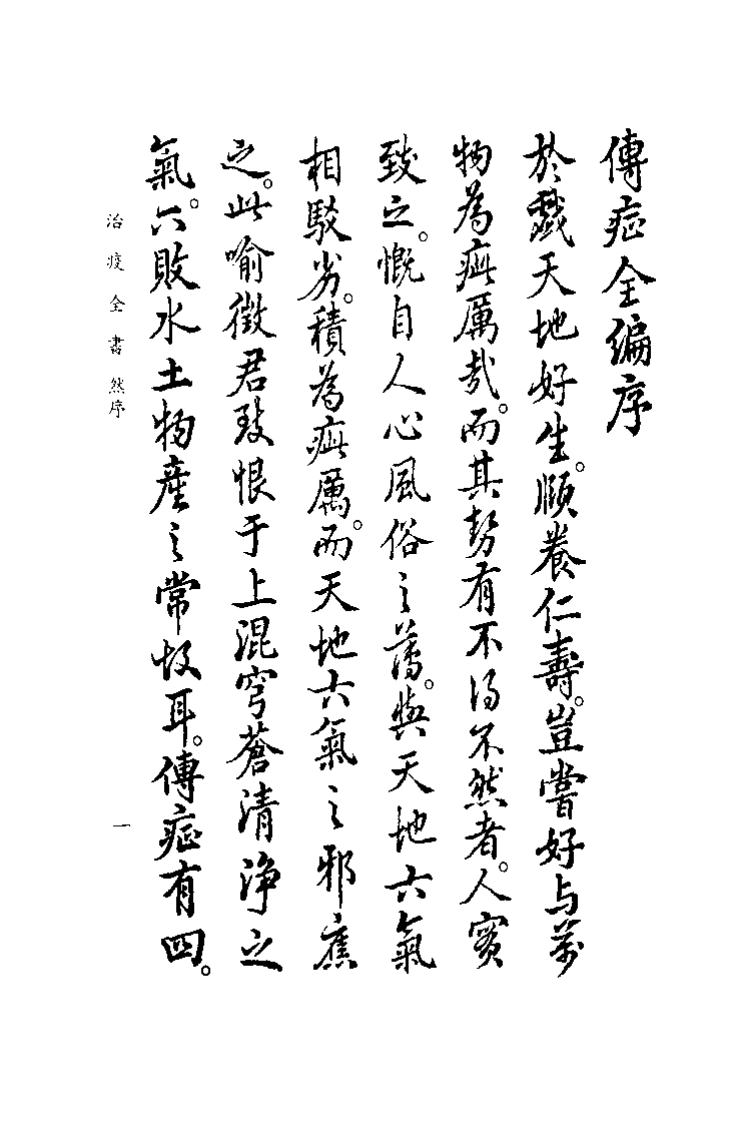 傳症全編序
於戲天地好生。頤養仁壽。豈嘗好与萬
物為疵厲哉。而其勢有不得不然者。人實
致之。慨自人心風俗之蕩。與天地六氣
相駁劣。積為疵厲。而天地六氣之邪應
之。此喻徵君致恨于上混穹蒼清淨之
氣。下敗水土物產之常故耳。傳症有四。
治疫全書 然序
一